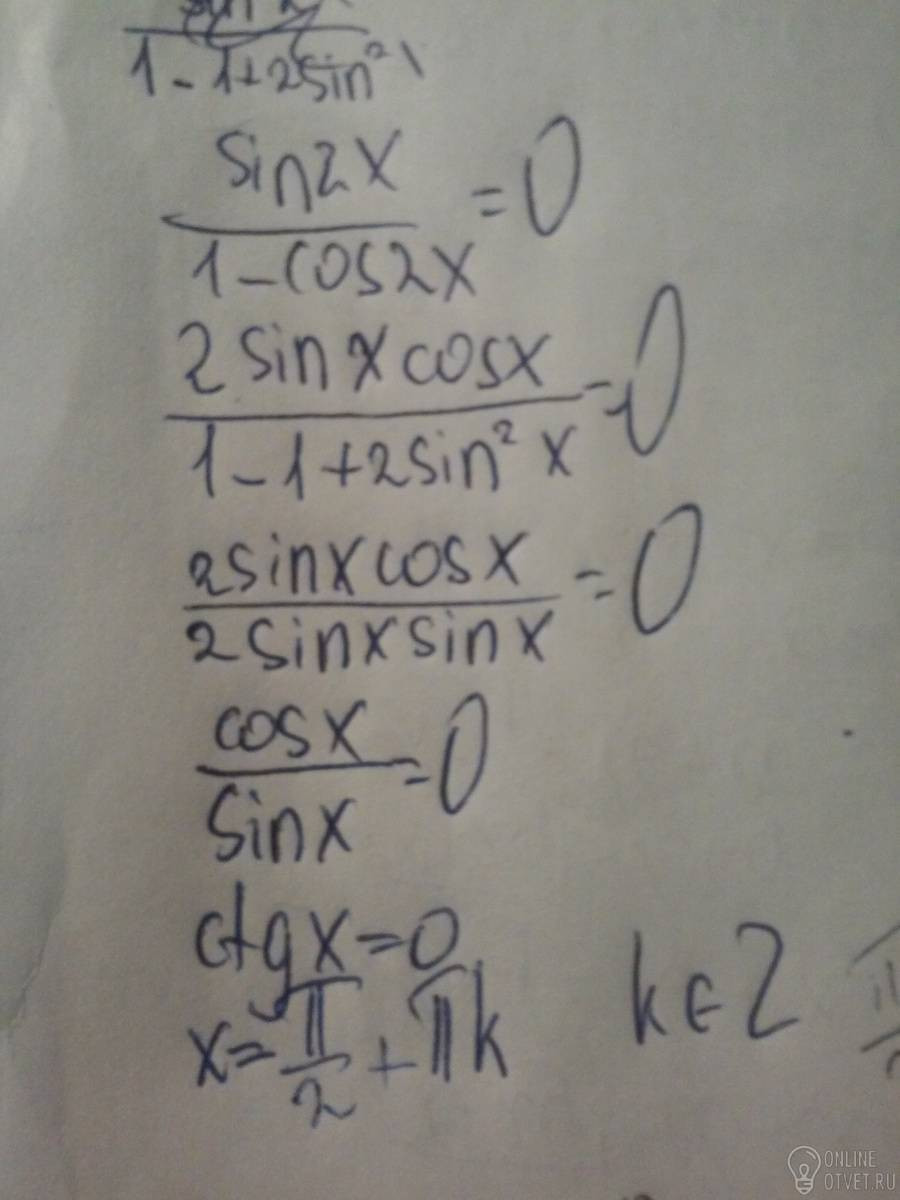 1-1+2sin²
sin2x
—— =0
1-cos2x
2sinx cosx
—— =0
1-1+2sin²x
2sinxcosx
—— =0
2sinxsinx
cosx
—— =0
sinx
ctgx=0
x=π/2+πk k∈Z
ONLINE
OTVET.RU